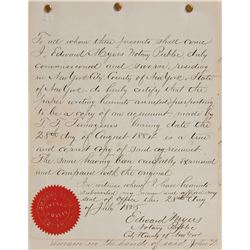 To all whom these presents shall come
I Edward Myers Notary Public duly
Commissioned and sworn, residing
in New York City County of New York State
of New York do hereby certify that the
paper writing hereunto annexed purporting
to be a copy of an agreement made by
bearing date the
28th day of August 1884 is a true
and correct copy of said agreement
The same having been carefully examined
and compared with the original
In witness whereof I have hereunto
subscribed my name and affixed my
seal of office this 28th day
of July 1885
Edward Myers
Notary Public
remain in the hands of said John